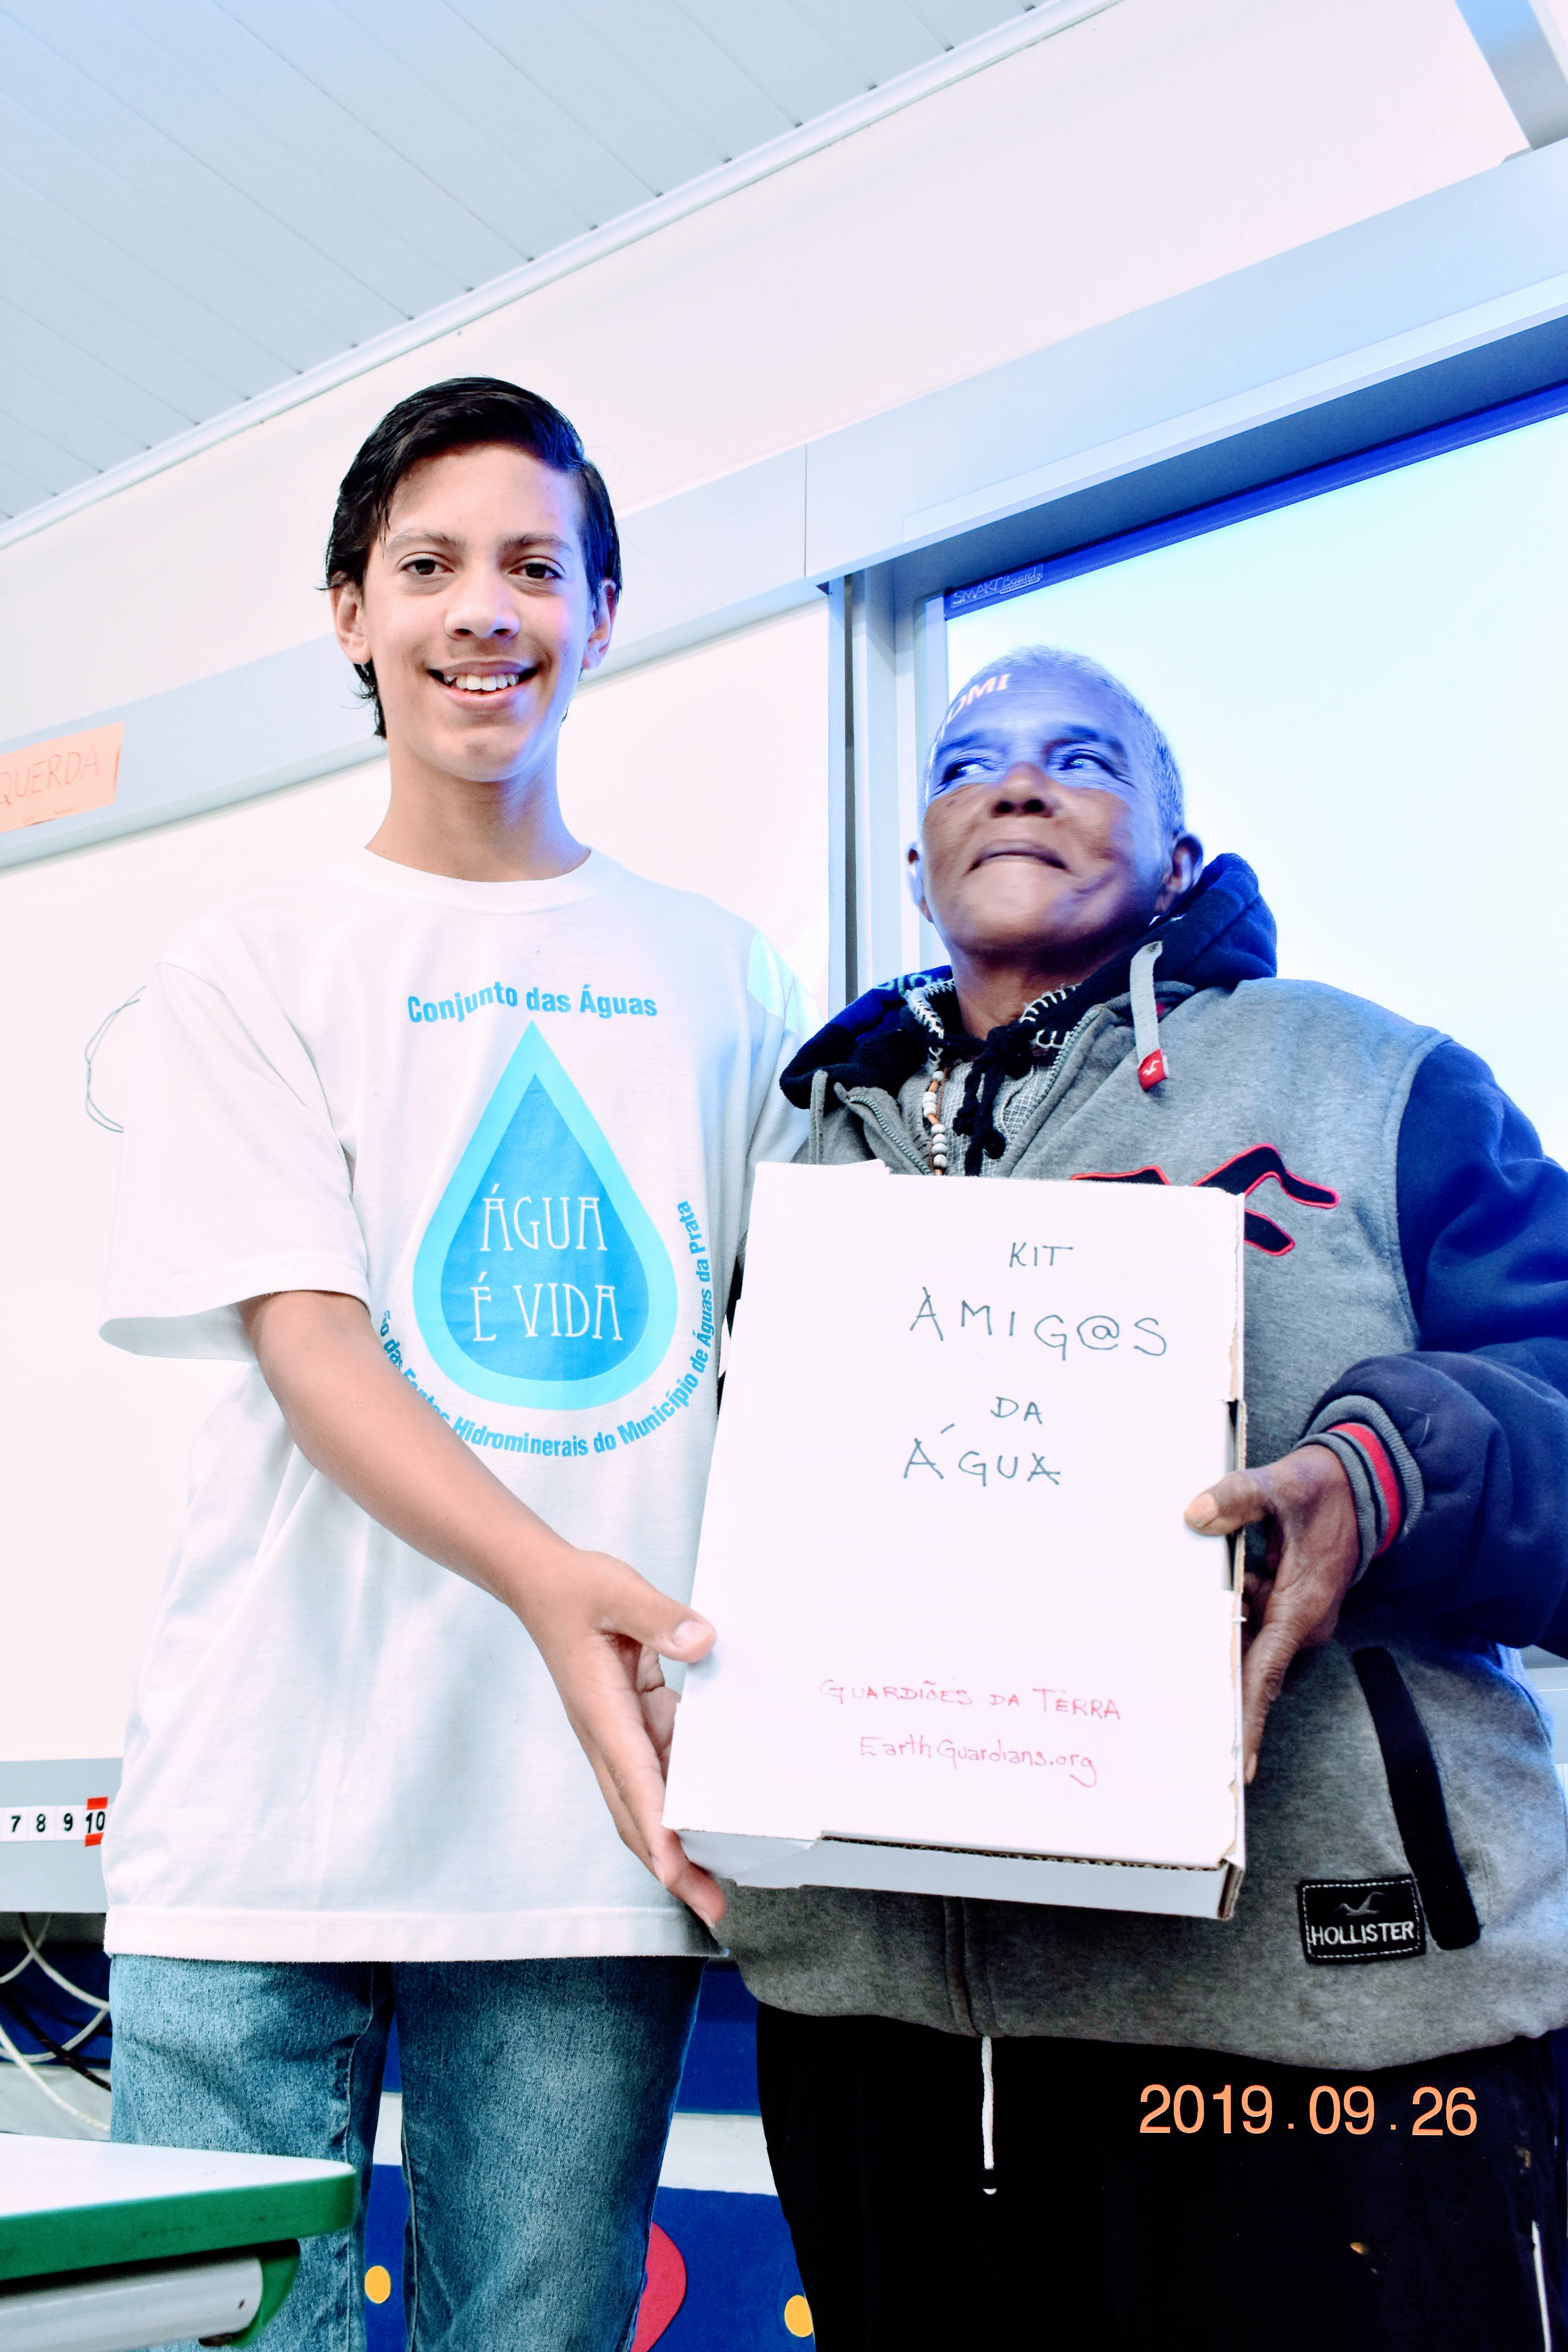 SMART Board
OMI
QUERDA
Conjunto das Águas
ÁGUA
É VIDA
ão das Fontes Hidrominerais do Município de Águas da Prata
KIT
AMIG@S
DA
ÁGUA
GUARDIÕES DA TERRA
EarthGuardians.org
7 8 9 10
HOLLISTER
2019.09.26